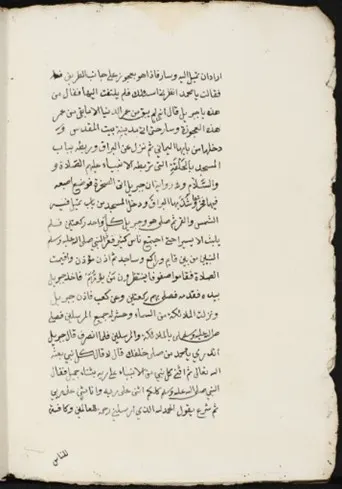 اراد ان تميل اليه وسار فاذا هو بعجوز على جانب الطريق
فقالت يا محمد انظرني اسئلك فلم يلتفت اليها فقال من
هذه يا جبريل قال انه لم يبق من عمر الدنيا الا ما بقي من عمر
هذه العجوزة وسار حتى اتى مدينة بيت المقدس
دخلها من بابها اليماني ثم نزل عن البراق وربطه بباب
المسجد بالحلقة التي تربطه الانبياء عليهم الصلاة
والسلام وفي رواية ان جبريل اتى الصخرة فوضع اصبعه
فيها فخرقها وشد بها البراق ودخل المسجد من باب تميل فيه
الشمس والقمر ثم صلى هو وجبريل كل واحد ركعتين فلم
يلبث الا يسيرا حتى اجتمع ناس كثير فعرف النبي صلى الله عليه وسلم
النبيين من بين قايم وراكع وساجد ثم اذن مؤذن واقيمت
الصلاة فقاموا صفوفا ينتظرون من يؤمهم فاخذ جبريل
بيده فقدمه فصلى بهم ركعتين وعن كعب فاذن جبريل
ونزلت الملائكة من السماء وحشر له جميع المرسلين فصلى
صلى الله عليه وسلم بالملائكة والمرسلين فلما انصرف قال جبريل
اتدري يا محمد من صلى خلفك قال لا قال كل نبي بعثه
الله تعالى ثم اثنى كل نبي من الانبياء على ربه بثناء جميل فقال
النبي صلى الله عليه وسلم كلكم اثنى على ربه وانا مثني على ربي
ثم شرع يقول الحمد لله الذي ارسلني رحمة للعالمين وكافة
للناس